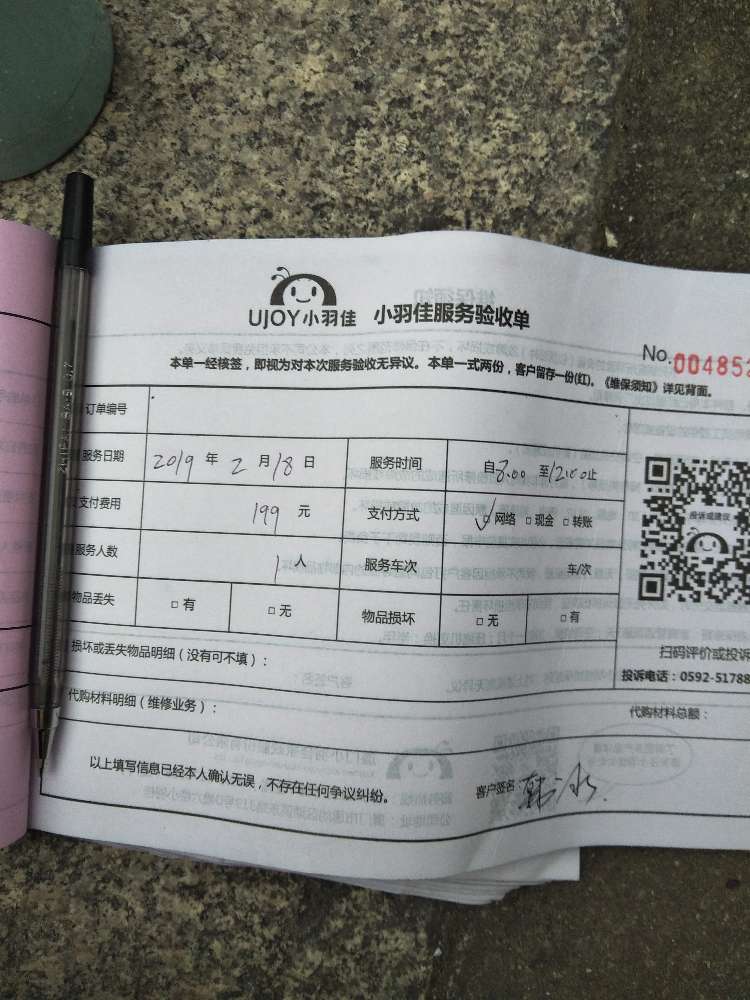 UJOY小羽佳 小羽佳服务验收单
No.00485
本单一经核签，即视为对本次服务验收无异议。本单一式两份，客户留存一份(红)。《维保须知》详见背面。
订单编号
服务日期 2019 年 2 月 18 日 服务时间 自8:00 至12:00止
支付费用 199 元 支付方式 ✓□ 网络 □ 现金 □ 转账
服务人数 1 人 服务车次 车/次
物品丢失 □ 有 □ 无 物品损坏 □ 无 □ 有
投诉或建议
扫码评价或投诉
投诉电话：0592-51788
损坏或丢失物品明细（没有可不填）：
代购材料明细（维修业务）： 代购材料总额：
以上填写信息已经本人确认无误，不存在任何争议纠纷。 客户签名